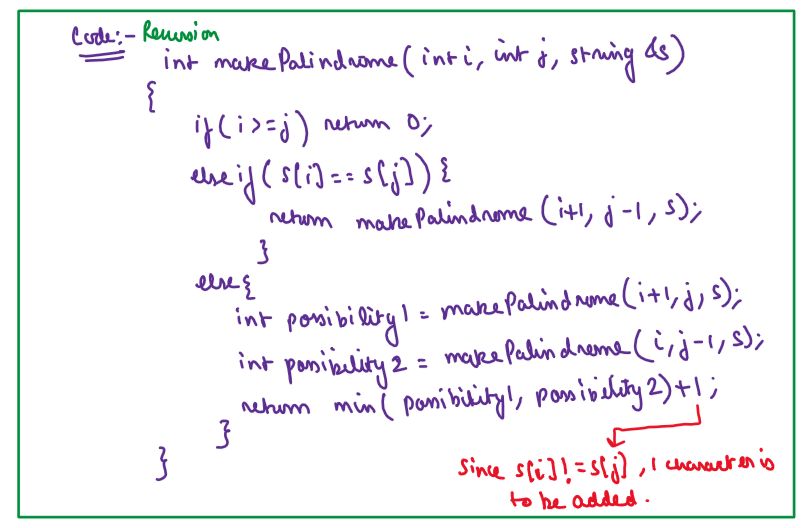 Code:- Recursion
int makePalindrome(int i, int j, string &s)
{
if(i>=j) return 0;
else if(s[i]==s[j]){
return makePalindrome(i+1, j-1, s);
}
else{
int possibility1 = makePalindrome(i+1, j, s);
int possibility2 = makePalindrome(i, j-1, s);
return min(possibility1, possibility2)+1;
}
}
since s[i]!=s[j], 1 character is
to be added.